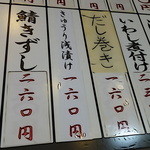 いわし煮付け
二三〇円
だし巻き
二六〇円
きゅうり浅漬け
一六〇円
鯖きずし
二六〇円